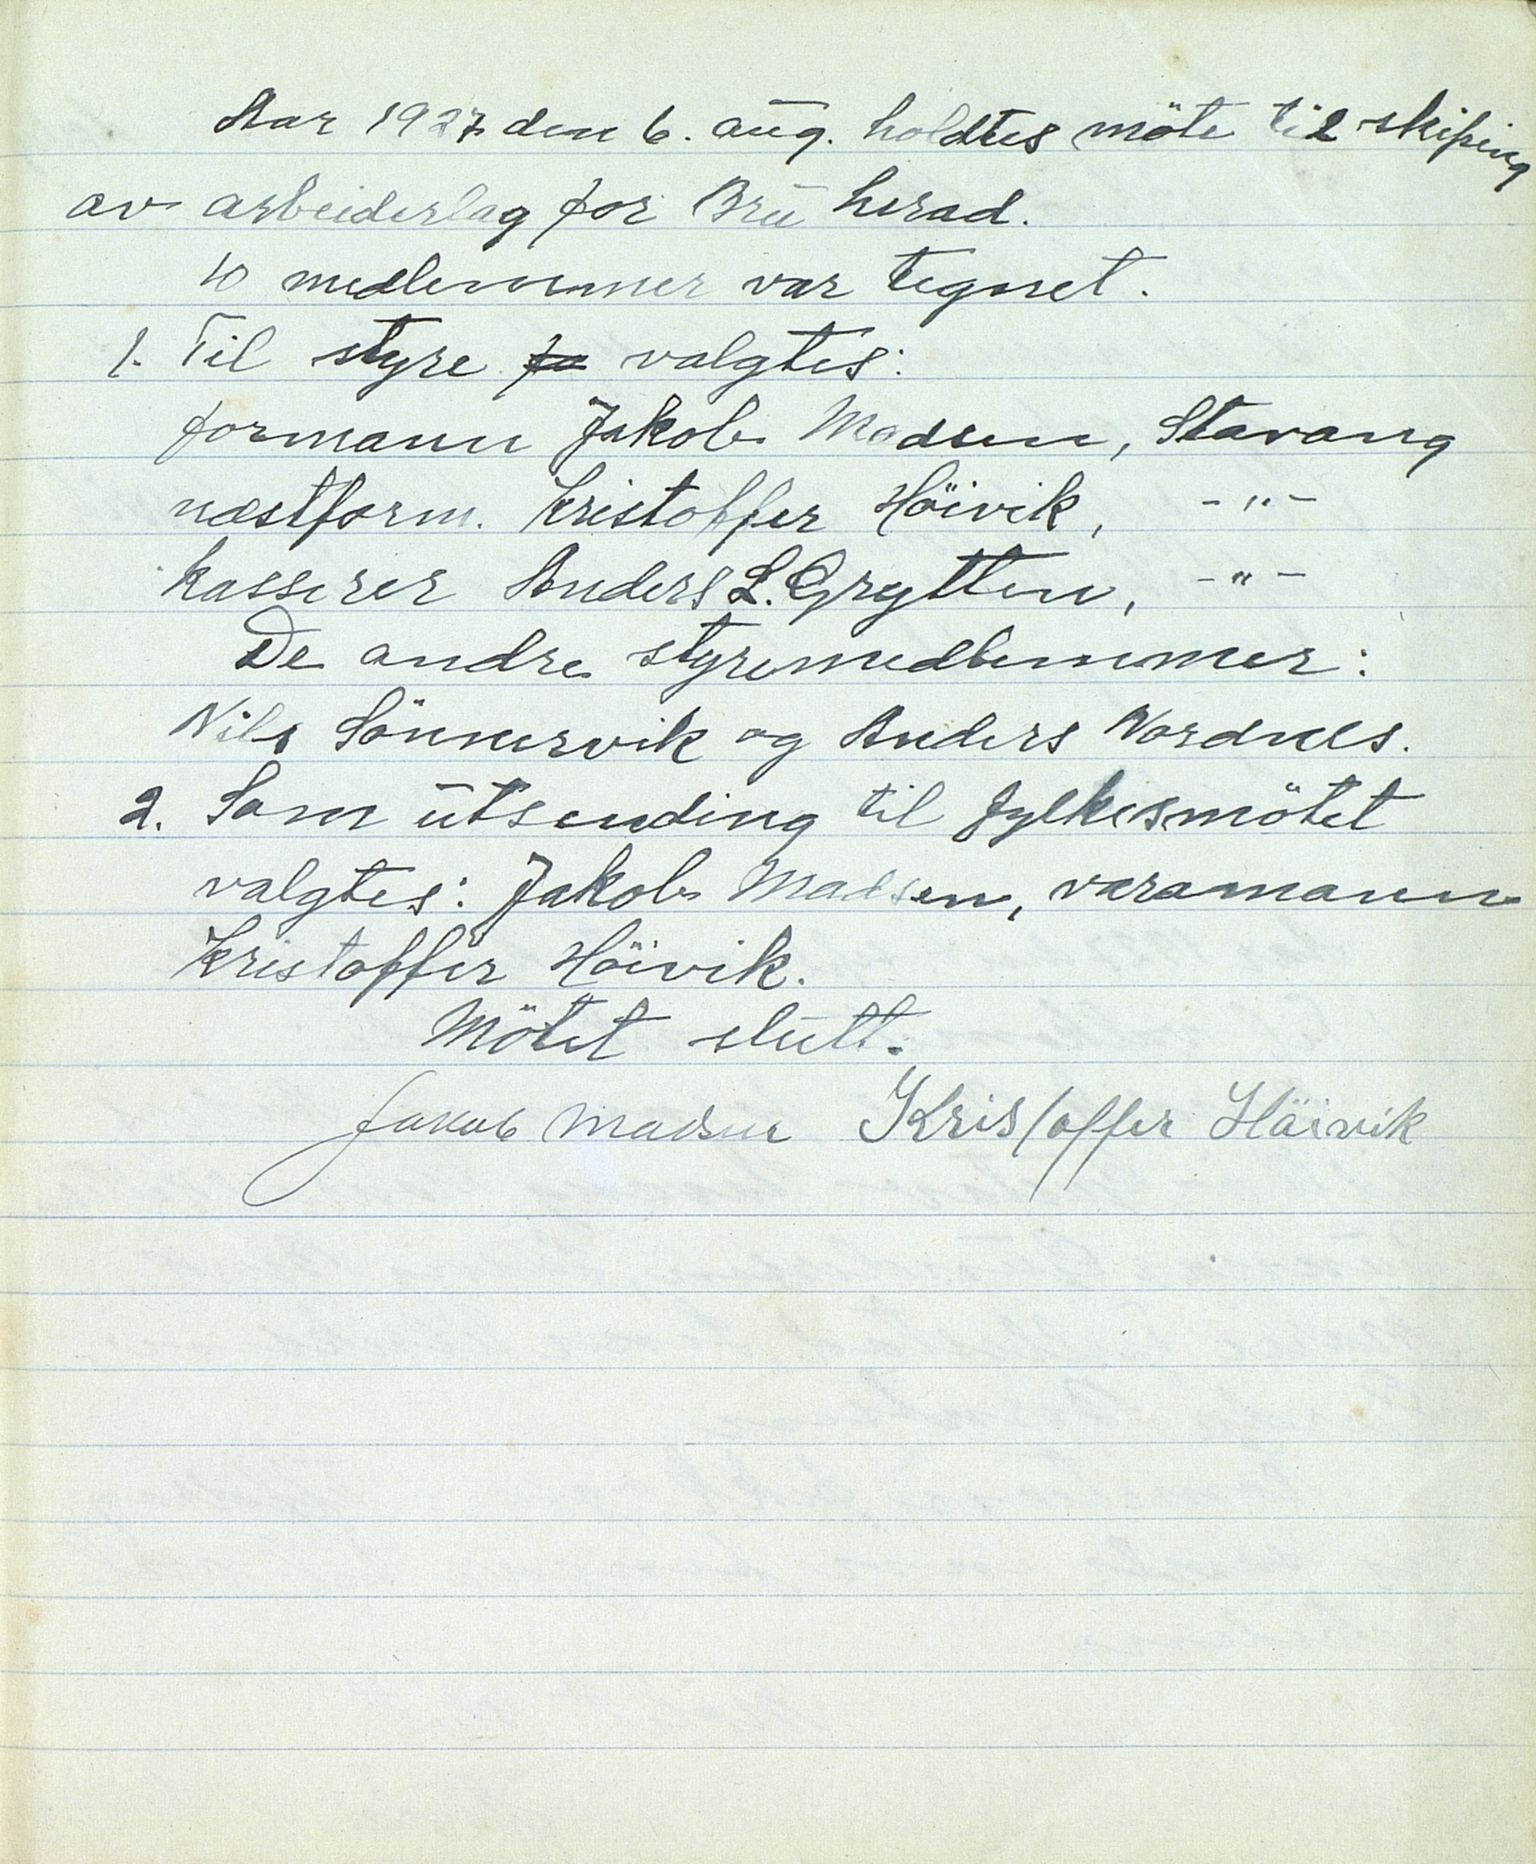 Aar 1927 den 6. aug. holdtes möte til skiping
av arbeiderlag for Bru herad.
10 medlemmer var tegnet.
1. Til styre fo valgtes:
formann Jakob Madsen, Stavang
næstform. Kristoffer Höivik, -"-
kasserer Anders L. Grytten, -"-
De andre styremedlemmer:
Nils Sönnervik og Anders Nordnes.
2. Som utsending til fylkesmötet
valgtes: Jakob Madsen, varamann
Kristoffer Höivik.
Mötet slutt.
Jakob Madsen Kristoffer Höivik